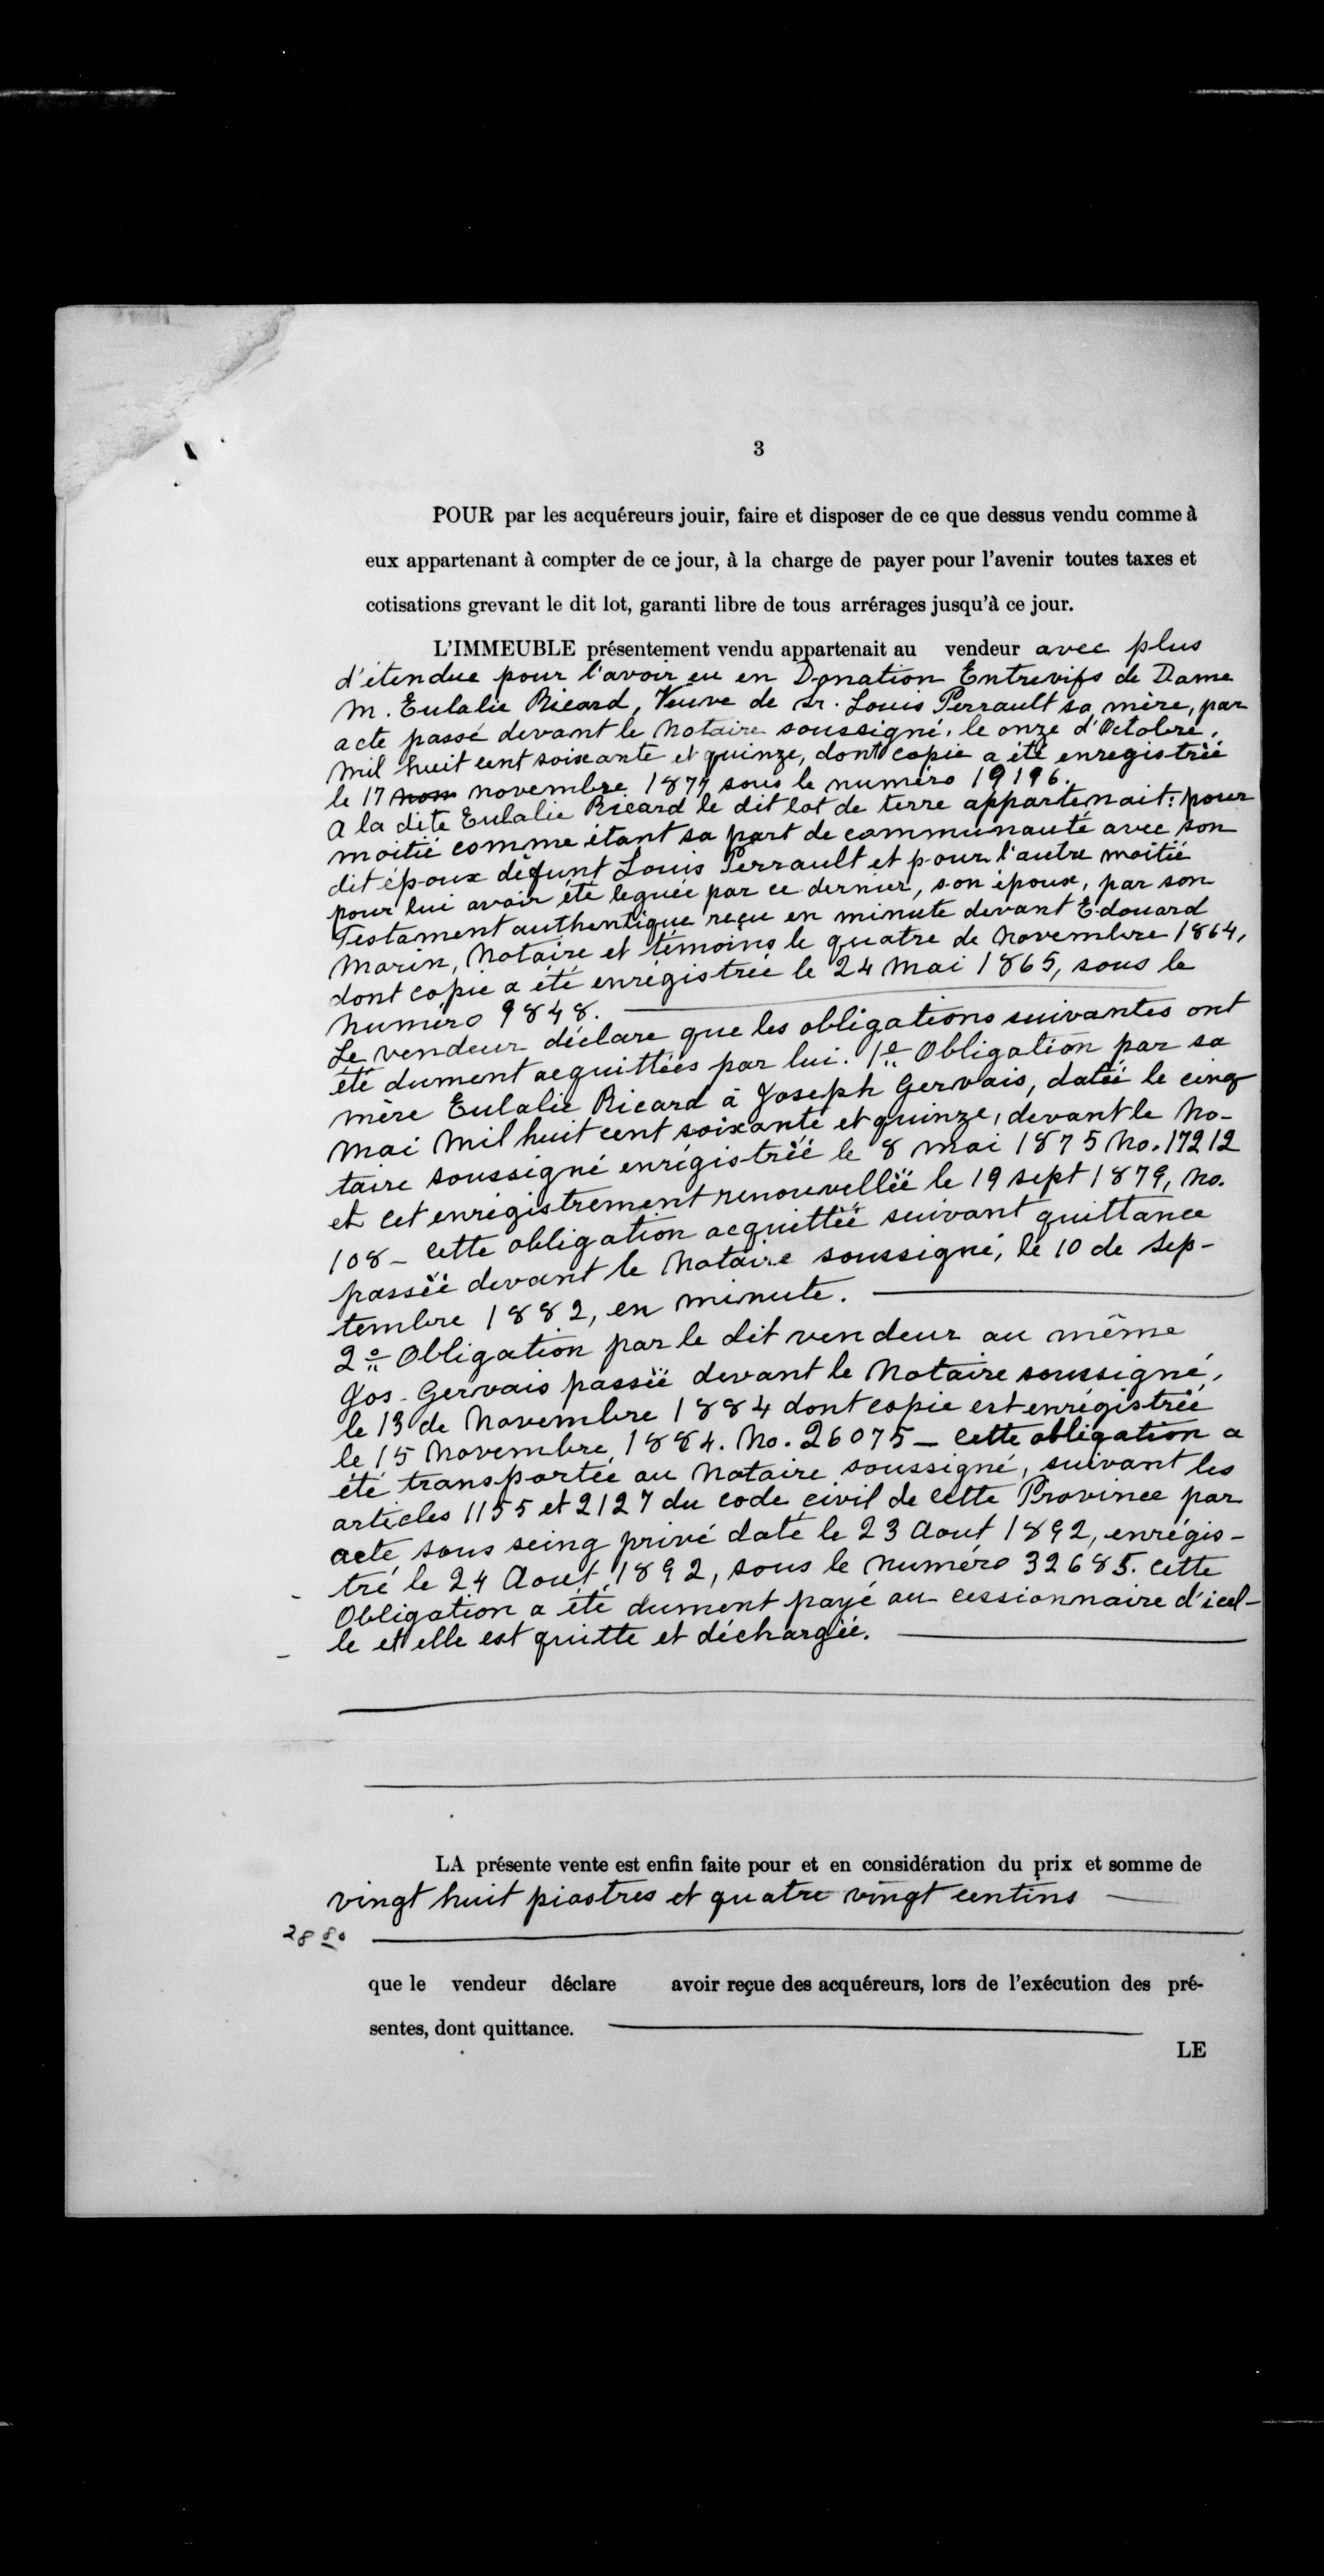 3
POUR par les acquéreurs jouir, faire et disposer de ce que dessus vendu comme à
eux appartenant à compter de ce jour, à la charge de payer pour l'avenir toutes taxes et
cotisations grevant le dit lot, garanti libre de tous arrérages jusqu'à ce jour.
L'IMMEUBLE présentement vendu appartenait au vendeur avec plus
d'étendue pour l'avoir eu en Donation Entrevifs de Dame
M. Eulalie Ricard, Veuve de Sr. Louis Perrault sa mère, par
acte passé devant le Notaire soussigné, le onze d'Octobre,
Mil huit cent soixante et quinze, dont copie a été enregistrée
le 17 novembre 1877 sous le numéro 19196.
A la dite Eulalie Ricard le dit lot de terre appartenait: pour
moitié comme étant sa part de communauté avec son
dit époux défunt Louis Perrault et pour l'autre moitié
pour lui avoir été leguée par ce dernier, son époux, par son
Testament authentique reçu en minute devant Edouard
Marin, Notaire et témoins le quatre de Novembre 1864,
dont copie a été enrégistrée le 24 Mai 1865, sous le
Numéro 9848.
Le vendeur déclare que les obligations suivantes ont
été dument acquittées par lui. 1o Obligation par sa
mère Eulalie Ricard à Joseph Gervais, datée le cinq
Mai Mil huit cent soixante et quinze, devant le No-
taire soussigné enrégistrée le 8 Mai 1875 No. 17212
et cet enrégistrement renouvellée le 19 sept 1879, No.
108 - cette obligation acquittée suivant quittance
passée devant le Notaire soussigné, le 10 de Sep-
tembre 1882, en minute.
2o Obligation par le dit vendeur au même
Jos. Gervais passée devant le Notaire soussigné,
le 13 de Novembre 1884 dont copie est enrégistrée
le 15 Novembre 1884. No. 26075 - cette obligation a
été transportée au Notaire soussigné, suivant les
articles 1155 et 2127 du code civil de cette Province par
acte sous seing privé daté le 23 Aout 1892, enrégis-
tré le 24 Aout 1892, sous le Numéro 32685. Cette
Obligation a été dument payé au cessionnaire d'icel-
le et elle est quitte et déchargée.
LA présente vente est enfin faite pour et en considération du prix et somme de
vingt huit piastres et quatre vingt centins
28 80
que le vendeur déclare avoir reçue des acquéreurs, lors de l'exécution des pré-
sentes, dont quittance.
LE